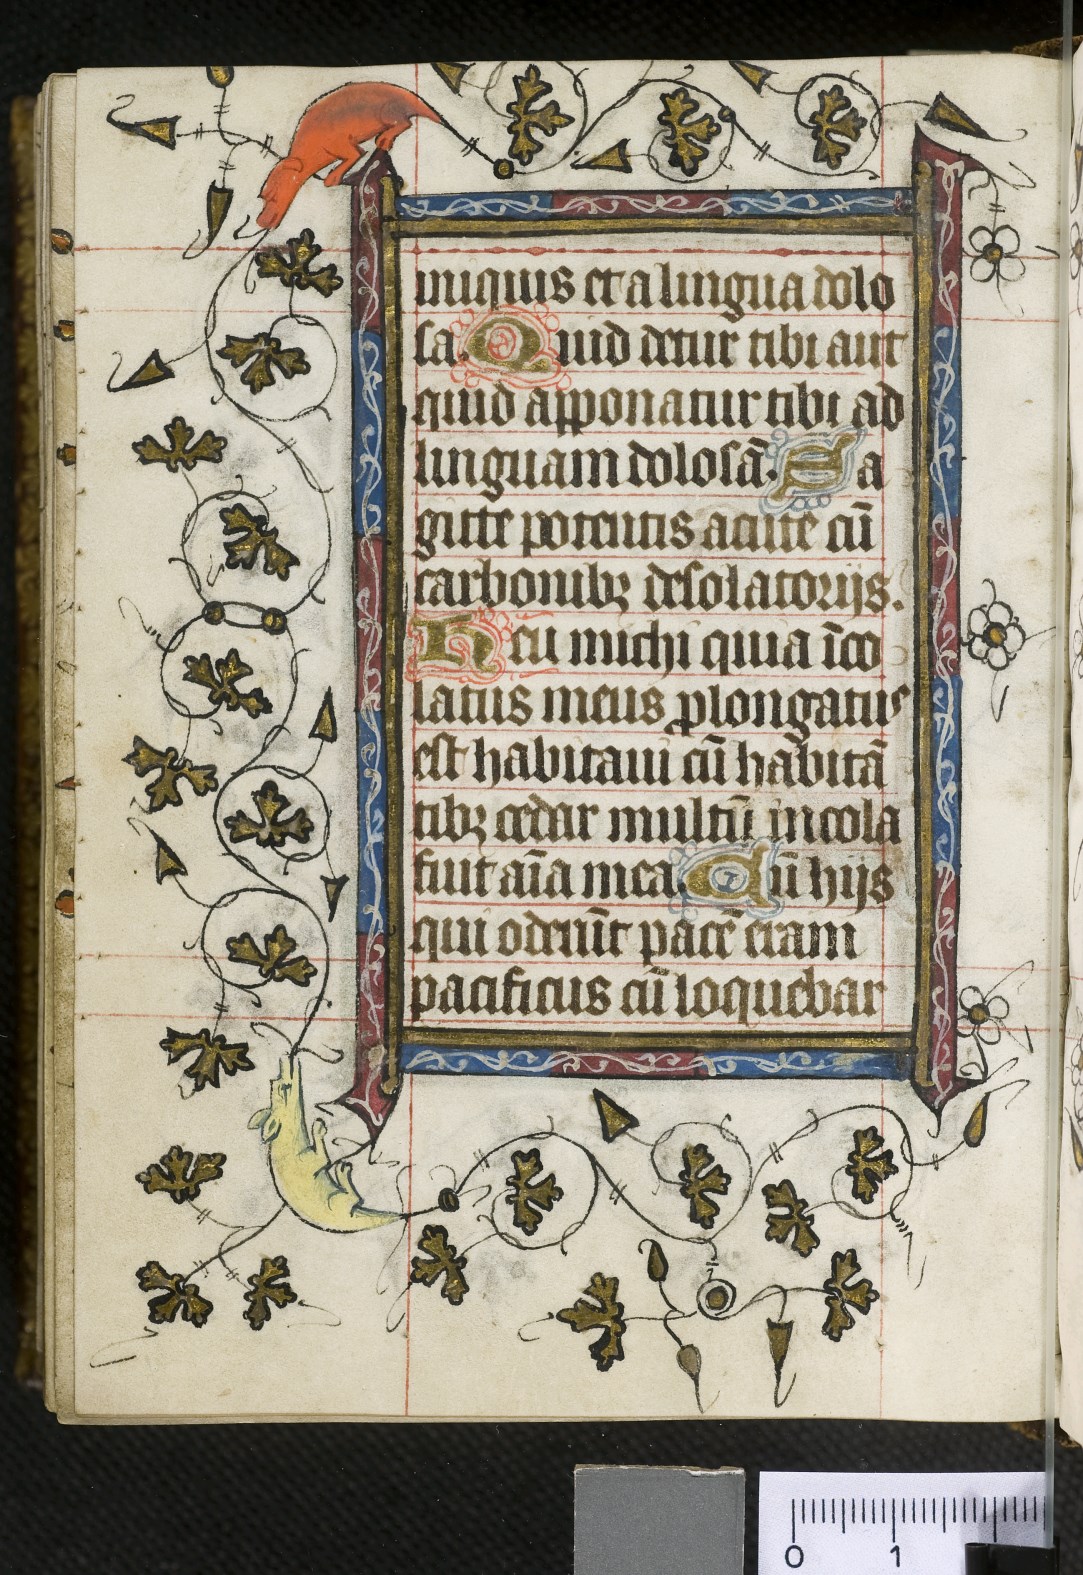 iniquis et a lingua dolo
sa. Quid detur tibi aut
quid apponatur tibi ad
linguam dolosā. Sa
gitte potentis acute cū
carbonibꝫ desolatorijs.
Heu michi quia īco
latus meus ꝓlongatus
est habitaui cū habitā
tibꝫ cedar multū incola
fuit aīa mea. Cū hijs
qui oderūt pacē eram
pacificus cū loquebar
0 1